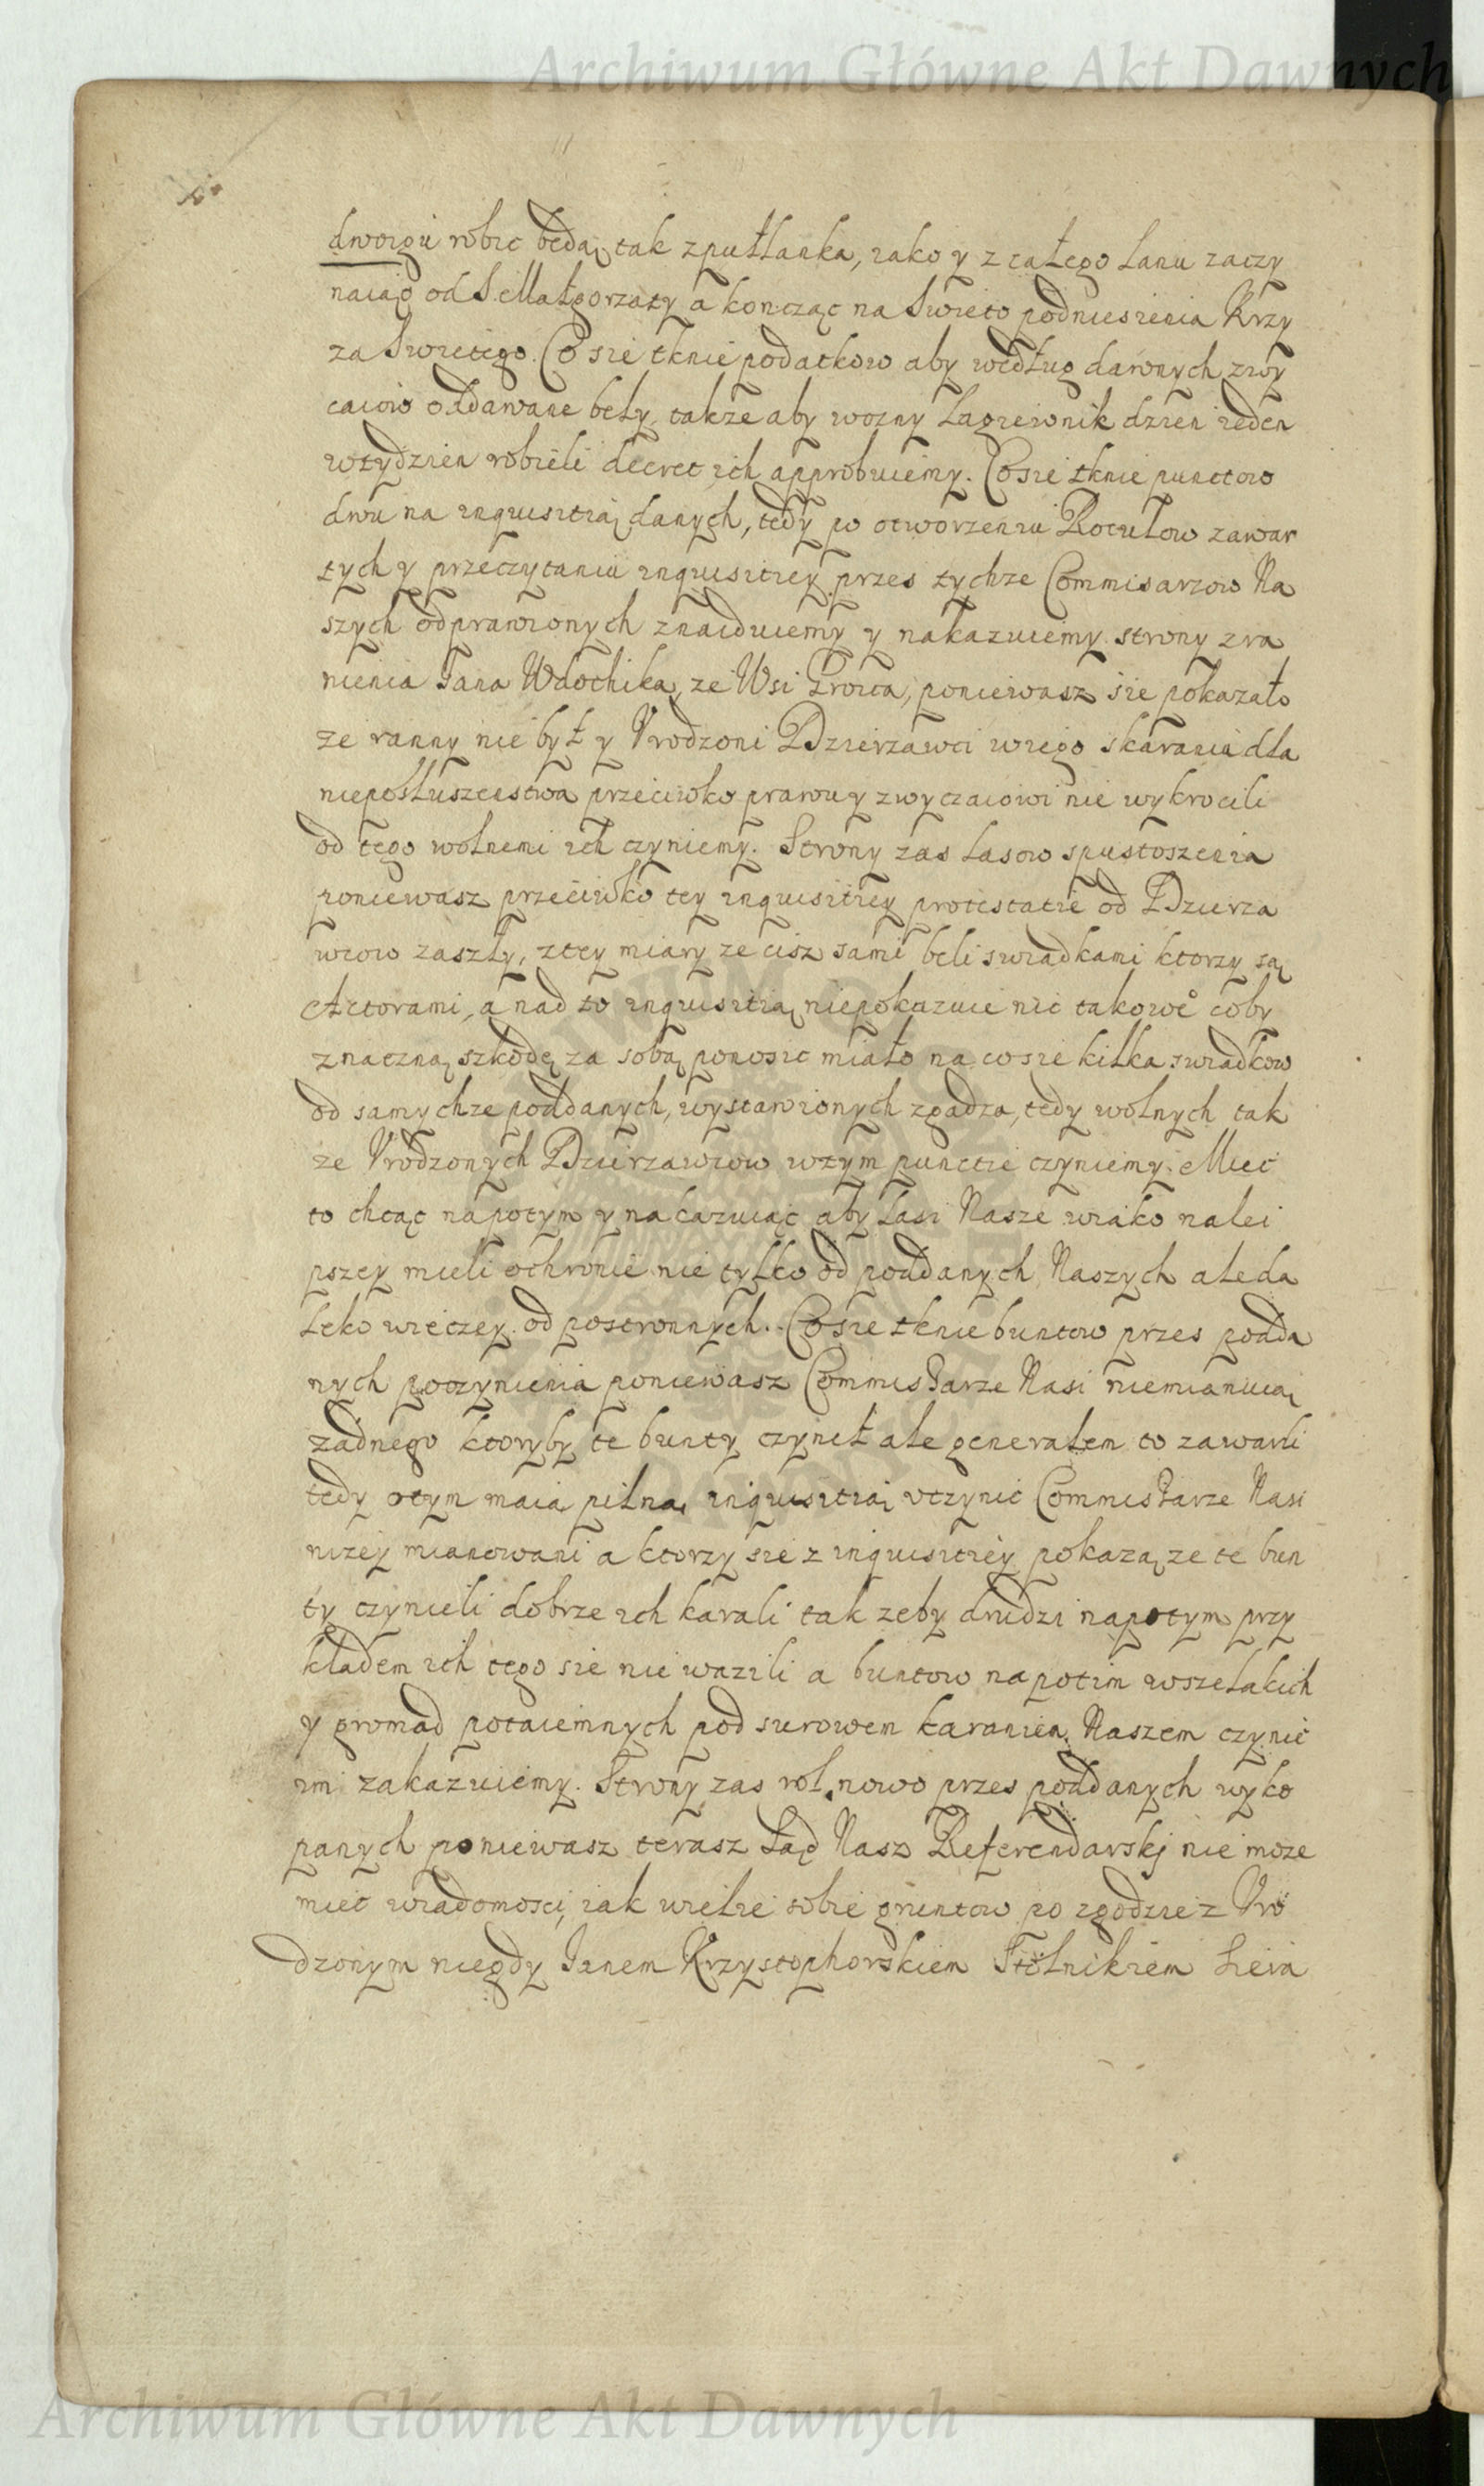 Archiwum Główne Akt Dawnych
dwoigu robic będą tak z pułłanka, iako y z całego łanu zaczy
naiąc od S. Małgorzaty a koncząc na Swieto podniesienia Krzy
za Swietego. Co sie tknie podatkow aby według dawnych zwy
caiow oddawane beły, takze aby wozny Łagiewnik dzien ieden
w tydzien robieli decret ich approbuiemy. Co sie tknie punctow
dwu na inquisitią danych, tedy po otworzeniu Rotułow zawar
tych y przeczytaniu inquisitiey przes tychze Commisarzow Na
szych odprawionych znaiduiemy y nakazuiemy strony zra
nienia Jana Wdochika, ze Wsi, poniewasz sie pokazało
ze ranny nie był y Vrodzoni Dzierzawci w iego skaraniu dla
nieposłuszenstwa przeciwko prawu y zwyczaiowi nie wykrocili
od tego wolnemi ich czyniemy. Strony zas lasow spustoszenia
poniewasz przeciwko tey inquisitiey protestatie od Dzierza
wcow zaszły, z tey miary ze cisz sami beli swiadkami ktorzy są
Actorami, a nad to inquisitia niepokazuie nic takowe° coby
znaczną szkodę za sobą ponosic miało na co sie kilka swiadkow
od samychze poddanych, wystawionych zgadza, tedy wolnych tak
ze Vrodzonych Dzierzawcow w tym punctie czyniemy. Miec
to chcąc napotym y nakazuiąc aby lasi Nasze w iako nalei
pszey mieli ochronie nie tylko od poddanych Naszych ale da
leko wieczey od postronnych. Co sie tknie buntow przes podda
nych poczynienia poniewasz Commissarze Nasi niemianuią
zadnego ktoryby te bunty czynił ale generałem to zawarli
tedy o tym maią pilną inquisitią vczynic Commissarze Nasi
nizey mianowani a ktorzy sie z inquisitiey pokazą ze te bun
ty czynieli dobrze ich karali tak zeby drudzi napotym przy
kładem ich tego sie nie wazili a buntow napotim wszelakich
y gromad potaiemnych pod surowem karaniem Naszem czynic
im zakazuiemy. Strony zas rol nowo przes poddanych wyko
panych poniewasz terasz Sąd Nasz Referendarskj nie moze
miec wiadomosci, iak wiele sobie gruntow po zgodzie z Vro
dzonym niegdy Janem Krzysztophorskiem Stolnikiem Siera
Archiwum Główne Akt Dawnych